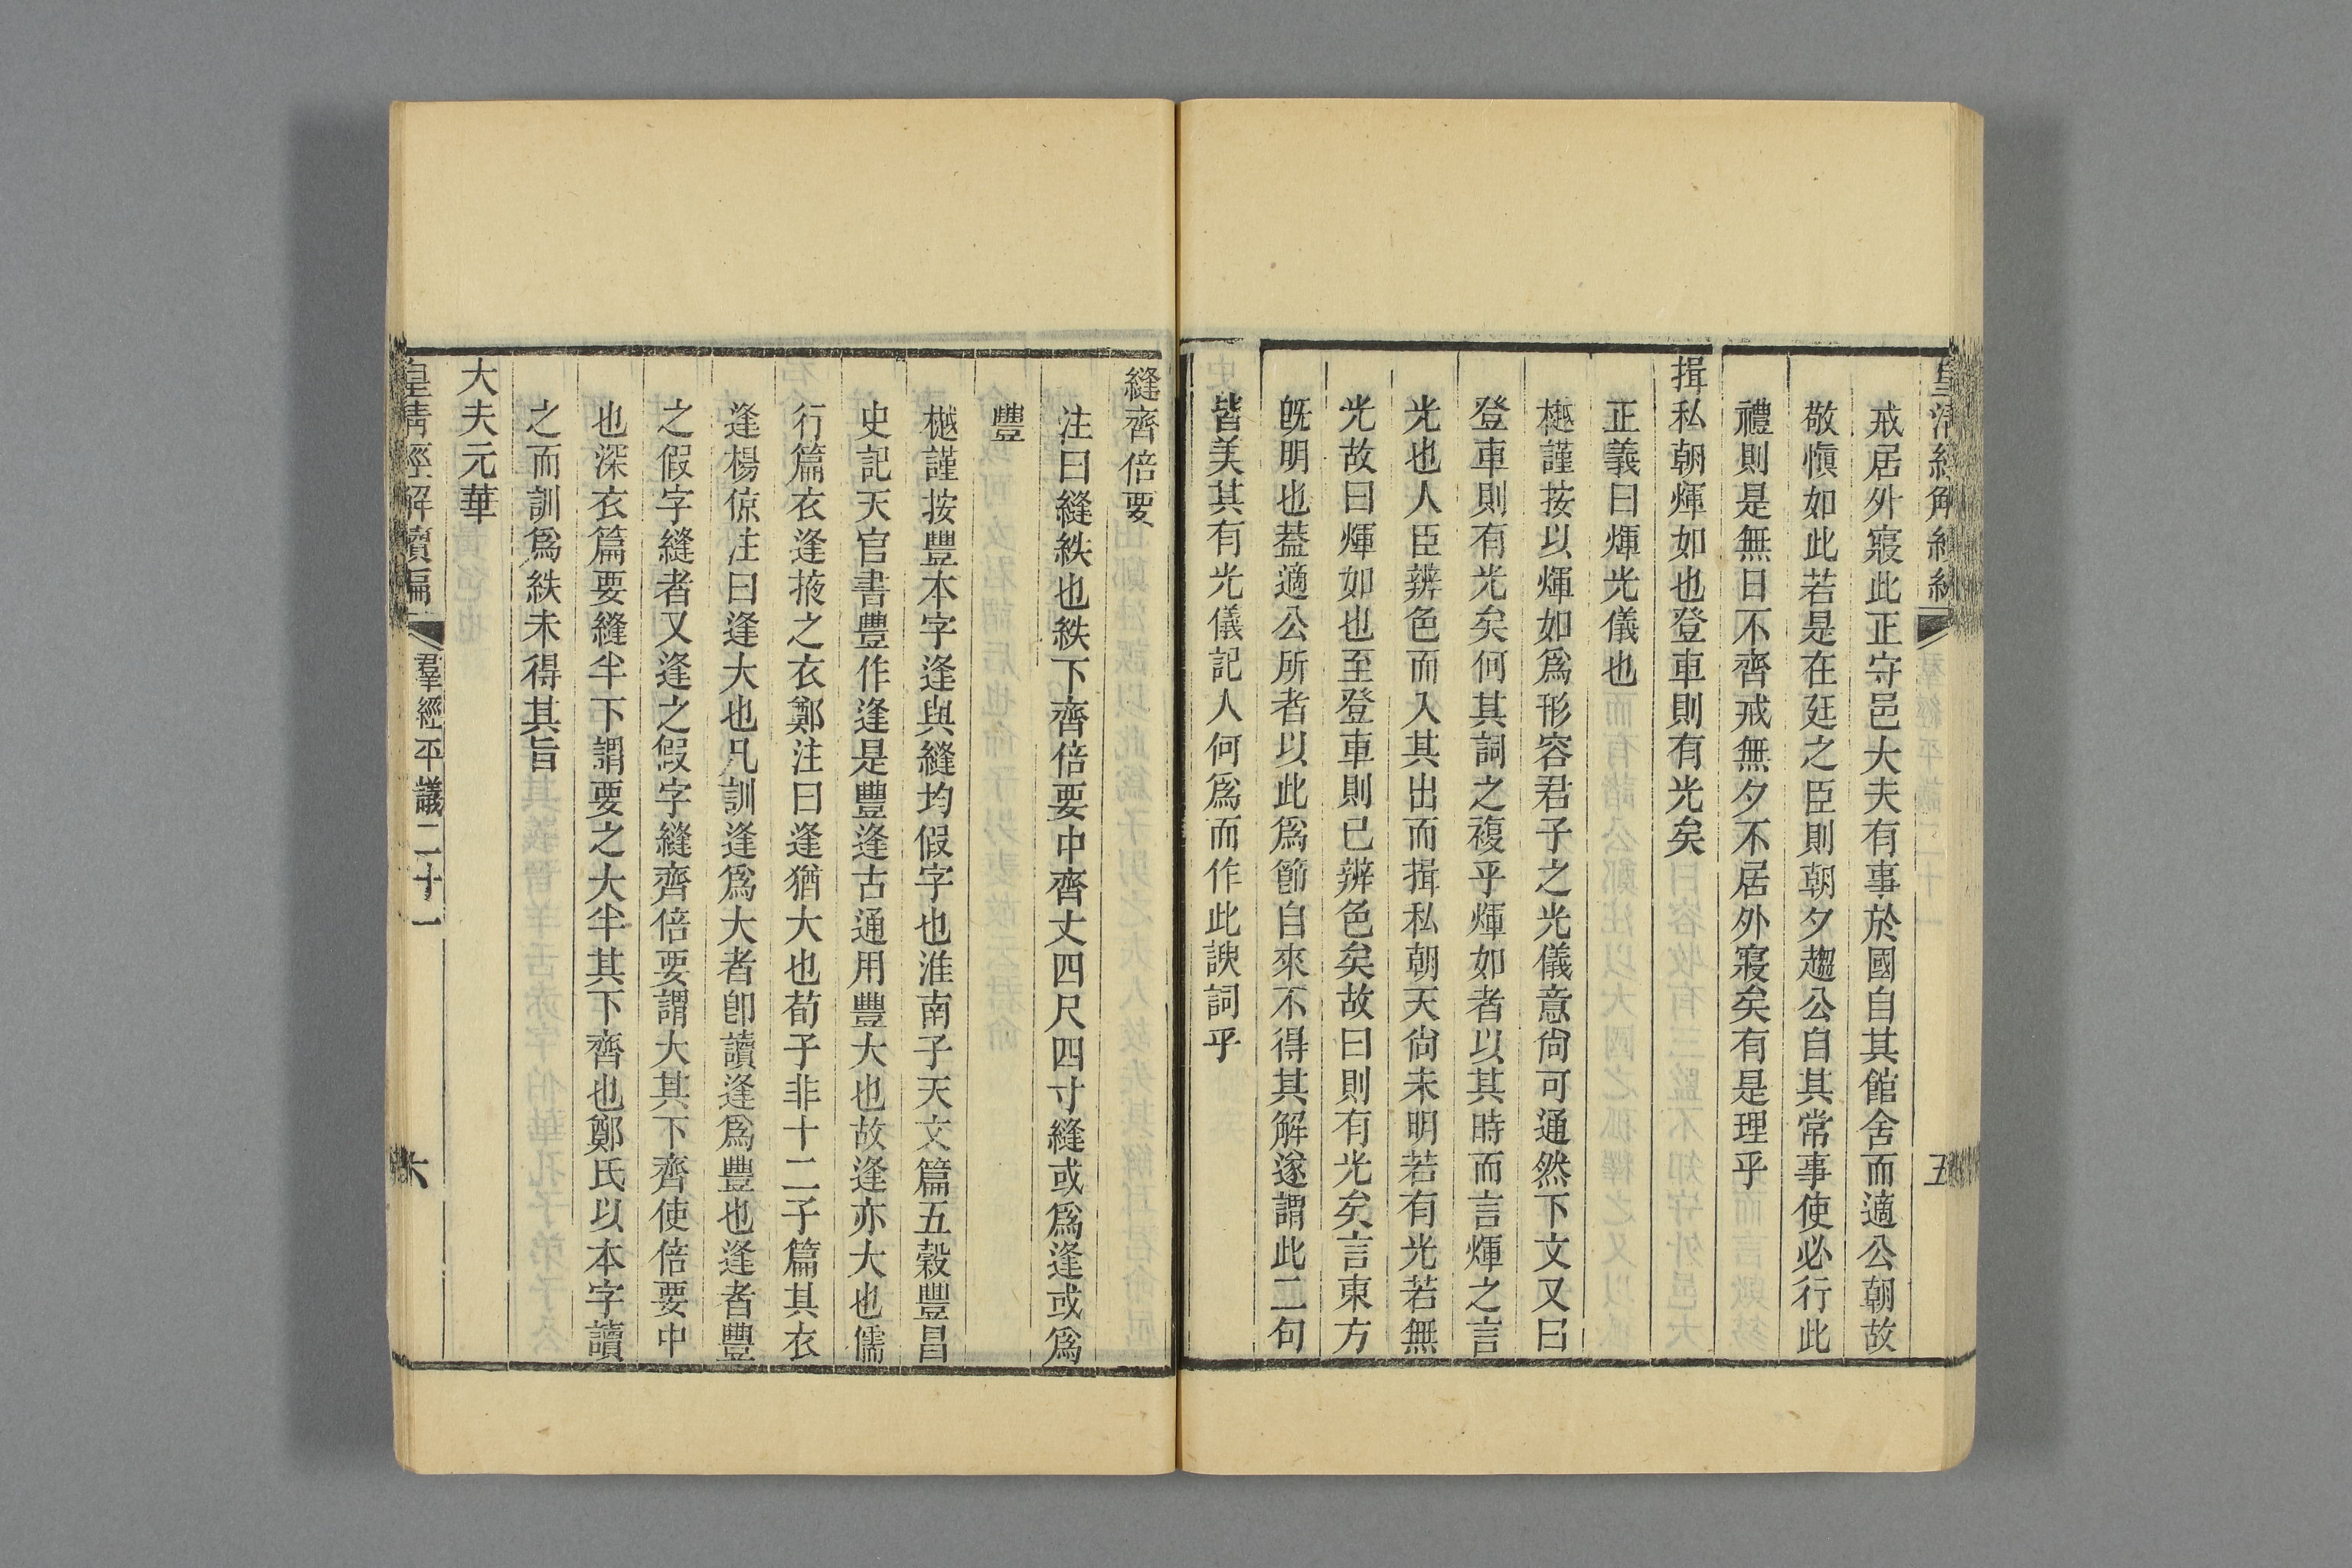 皇清經解續編
五
戒居外寢此正守邑大夫有事於國自其館舍而適公朝故
敬愼如此若是在廷之臣則朝夕趨公自其常事使必行此
禮則是無日不齊戒無夕不居外寢矣有是理乎
揖私朝煇如也登車則有光矣
正義曰煇光儀也
樾謹按以煇如爲形容君子之光儀意尙可通然下文又曰
登車則有光矣何其詞之複乎煇如者以其時而言煇之言
光也人臣辨色而入其出而揖私朝天尙未明若有光若無
光故曰煇如也至登車則已辨色矣故曰則有光矣言東方
旣明也葢適公所者以此爲節自來不得其解遂謂此二句
皆美其有光儀記人何爲而作此諛詞乎
縫齊倍要
注曰縫紩也紩下齊倍要中齊丈四尺四寸縫或爲逢或爲
豐
樾謹按豐本字逢與縫均假字也淮南子天文篇五穀豐昌
史記天官書豐作逢是豐逢古通用豐大也故逢亦大也儒
行篇衣逢掖之衣鄭注曰逢猶大也荀子非十二子篇其衣
逢楊倞注曰逢大也凡訓逢爲大者卽讀逢爲豐也逢者豐
之假字縫者又逢之假字縫齊倍要謂大其下齊使倍要中
也深衣篇要縫半下謂要之大半其下齊也鄭氏以本字讀
之而訓爲紩未得其旨
大夫元華
皇淸經解續編
羣經平議二十一
六